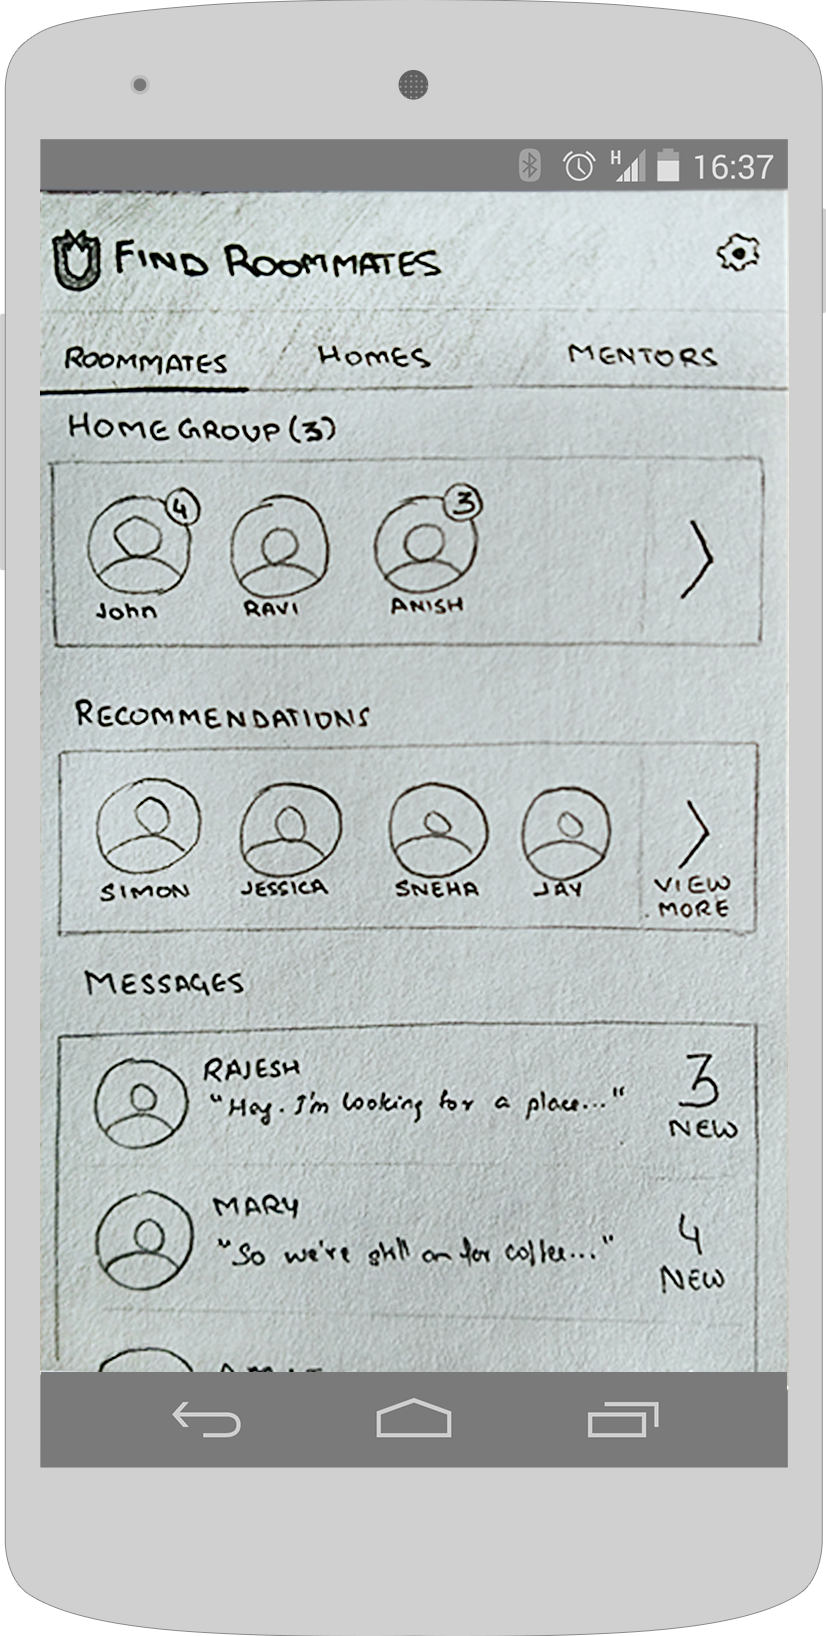 H 16:37
FIND ROOMMATES
ROOMMATES HOMES MENTORS
HOME GROUP (3)
4 3
John RAVI ANISH
RECOMMENDATIONS
SIMON JESSICA SNEHA JAY VIEW
MORE
MESSAGES
RAJESH 3
"Hey. I'm looking for a place..." NEW
MARY 4
"So we're still on for coffee..." NEW